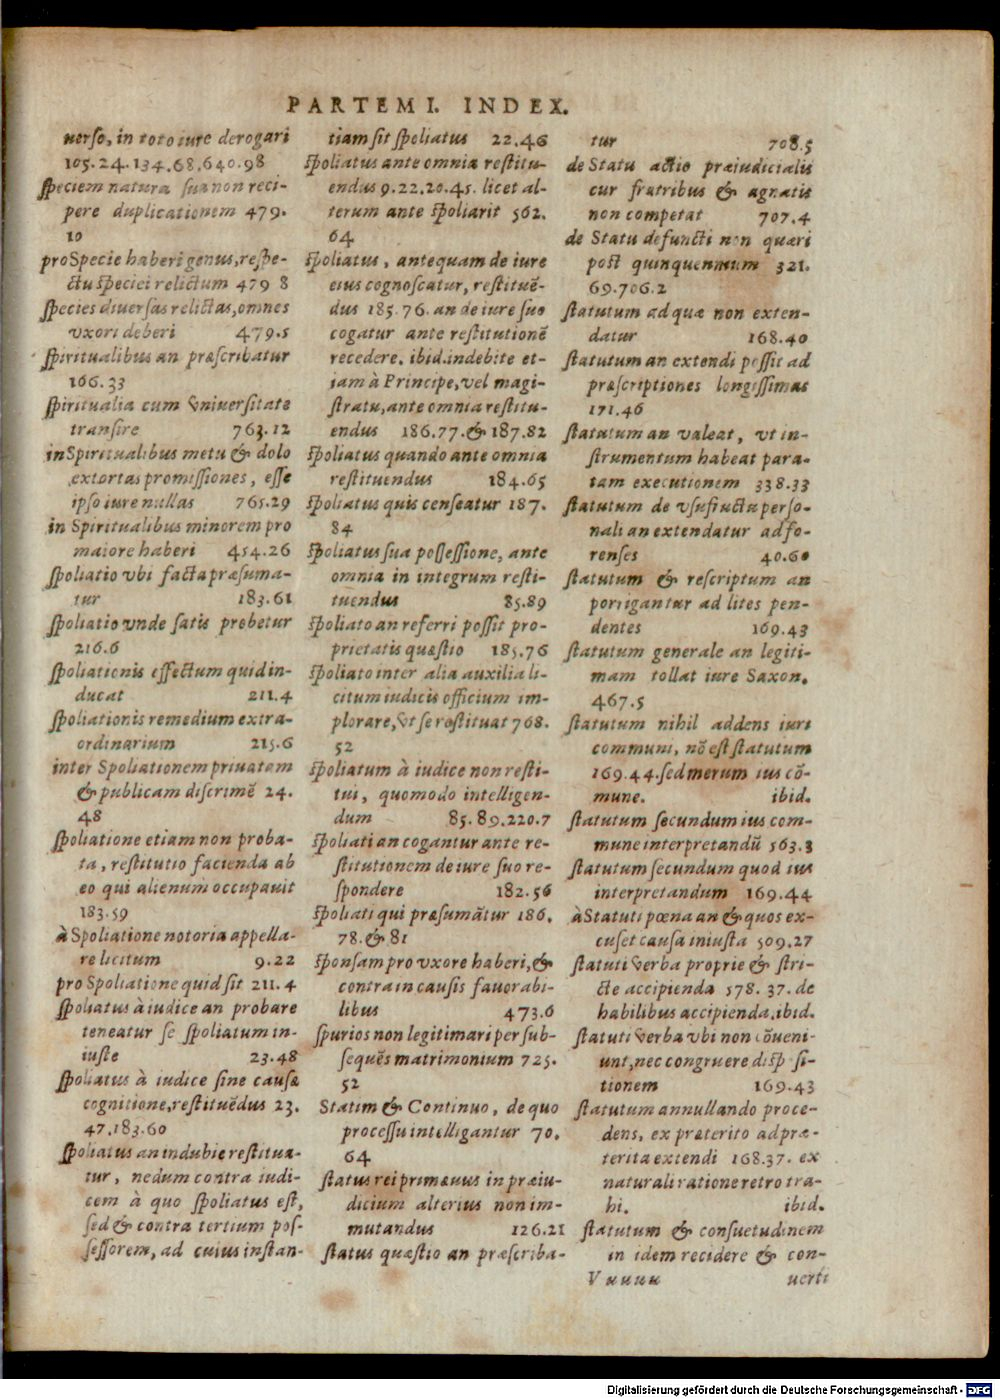 PARTEM I. INDEX.
uerso, in toto iure derogari
105.24.134.68.640.98
speciem natura sua non reci-
pere duplicationem 479.
10
pro Specie haberi genus, respe-
ctu speciei relictum 479 8
species diuersas relictas, omnes
vxori deberi 479.5
spiritualibus an præscribatur
166.33
spiritualia cum vniuersitate
transire 763.12
in Spiritualibus metu & dolo
extortas promissiones, esse
ipso iure nullas 765.29
in Spiritualibus minorem pro
maiore haberi 454.26
spoliatio vbi facta præsuma-
tur 183.61
spoliatio vnde satis probetur
216.6
spoliationis effectum quid in-
ducat 211.4
spoliationis remedium extra-
ordinarium 215.6
inter Spoliationem priuatam
& publicam discrimē 24.
48
spoliatione etiam non proba-
ta, restitutio facienda ab
eo qui alienum occupauit
183.59
à Spoliatione notoria appella-
re licitum 9.22
pro Spoliatione quid sit 211.4
spoliatus à iudice an probare
teneatur se spoliatum in-
iuste 23.48
spoliatus à iudice sine causæ
cognitione, restituēdus 23.
47.183.60
spoliatus an indubie restitua-
tur, nedum contra iudi-
cem à quo spoliatus est,
sed & contra tertium pos-
sessorem, ad cuius instan-
tiam sit spoliatus 22.46
spoliatus ante omnia restitu-
endus 9.22.20.45. licet al-
terum ante spoliarit 562.
64
spoliatus, antequam de iure
eius cognoscatur, restituē-
dus 185.76. an de iure suo
cogatur ante restitutionē
recedere. ibid. indebite et-
iam à Principe, vel magi-
stratu, ante omnia restitu-
endus 186.77. & 187.82
spoliatus quando ante omnia
restituendus 184.65
spoliatus quis censeatur 187.
84
spoliatus sua possessione, ante
omnia in integrum resti-
tuendus 85.89
spoliato an referri possit pro-
prietatis quæstio 185.76
spoliato inter alia auxilia li-
citum iudicis officium im-
plorare, vt se restituat 768.
52
spoliatum à iudice non resti-
tui, quomodo intelligen-
dum 85.89.220.7
spoliati an cogantur ante re-
stitutionem de iure suo re-
spondere 182.56
spoliati qui præsumātur 186.
78. & 81
sponsam pro vxore haberi, &
contra in causis fauorabi-
libus 473.6
spurios non legitimari per sub-
sequēs matrimonium 725.
52
Statim & Continuo, de quo
processu intelligantur 70.
64
status rei primæuus in præiu-
dicium alterius non im-
mutandus 126.21
status quæstio an præscriba-
tur 708.5
de Statu actio præiudicialis
cur fratribus & agnatis
non competat 707.4
de Statu defuncti non quæri
post quinquennium 321.
69.706.2
statutum ad quæ non exten-
datur 168.40
statutum an extendi possit ad
præscriptiones longissimas
171.46
statutum an valeat, vt in-
strumentum habeat para-
tam executionem 338.33
statutum de vsufructu perso-
nali an extendatur ad fo-
renses 40.60
statutum & rescriptum an
porrigantur ad lites pen-
dentes 169.43
statutum generale an legiti-
mam tollat iure Saxon.
467.5
statutum nihil addens iuri
communi, nō est statutum
169.44. sed merum ius cō-
mune. ibid.
statutum secundum ius com-
mune interpretandū 563.3
statutum secundum quod ius
interpretandum 169.44
à Statuti pœna an & quos ex-
cuset causa iniusta 509.27
statuti verba proprie & stri-
cte accipienda 578.37. de
habilibus accipienda. ibid.
statuti verba vbi non cōueni-
unt, nec congruere disp si-
tionem 169.43
statutum annullando proce-
dens, ex præterito ad præ-
terita extendi 168.37. ex
naturali ratione retro tra-
hi. ibid.
statutum & consuetudinem
in idem recidere & con-
V uuuu uerti
Digitalisierung gefördert durch die Deutsche Forschungsgemeinschaft - DFG